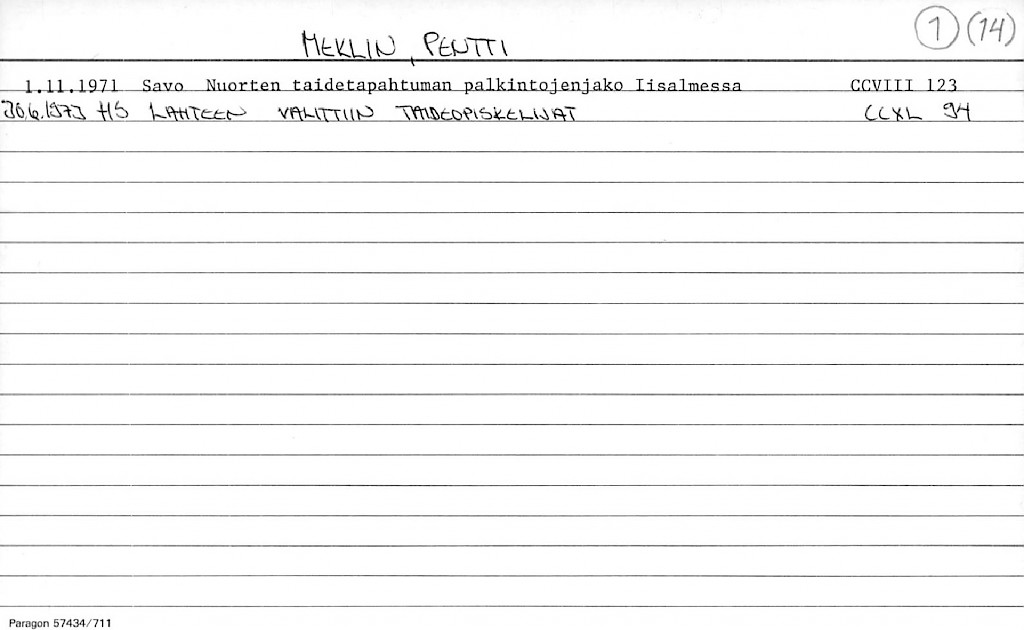 1 (14)
MEKLIN, PENTTI
1.11.1971 Savo Nuorten taidetapahtuman palkintojenjako Iisalmessa CCVIII 123
30.6.1973 HS LAHTEEN VALITTIIN TAIDEOPISKELIJAT CCXL 94
Paragon 57434/711